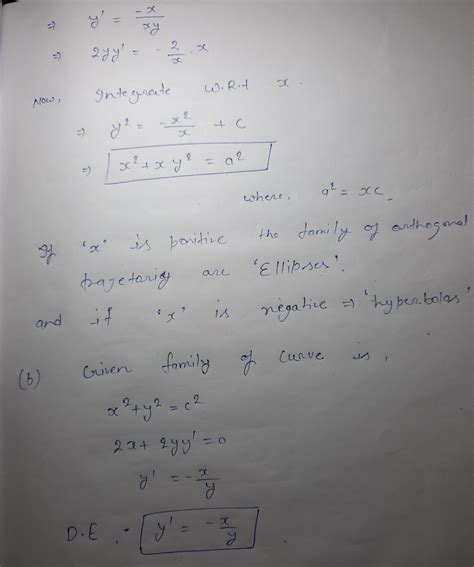 ⇒ y' = -x/xy
⇒ 2yy' = -2/x . x
Now, Integrate W.R.t x.
⇒ y² = -x²/x + c
⇒ x² + x y² = a²
where, a² = xc.
If 'x' is positive the family of orthogonal
trajetories are 'Ellipses'.
and if 'x' is negative ⇒ 'hyperbolas'
(b) Given family of curve is,
x² + y² = c²
2x + 2yy' = 0
y' = -x/y
D.E. : y' = -x/y